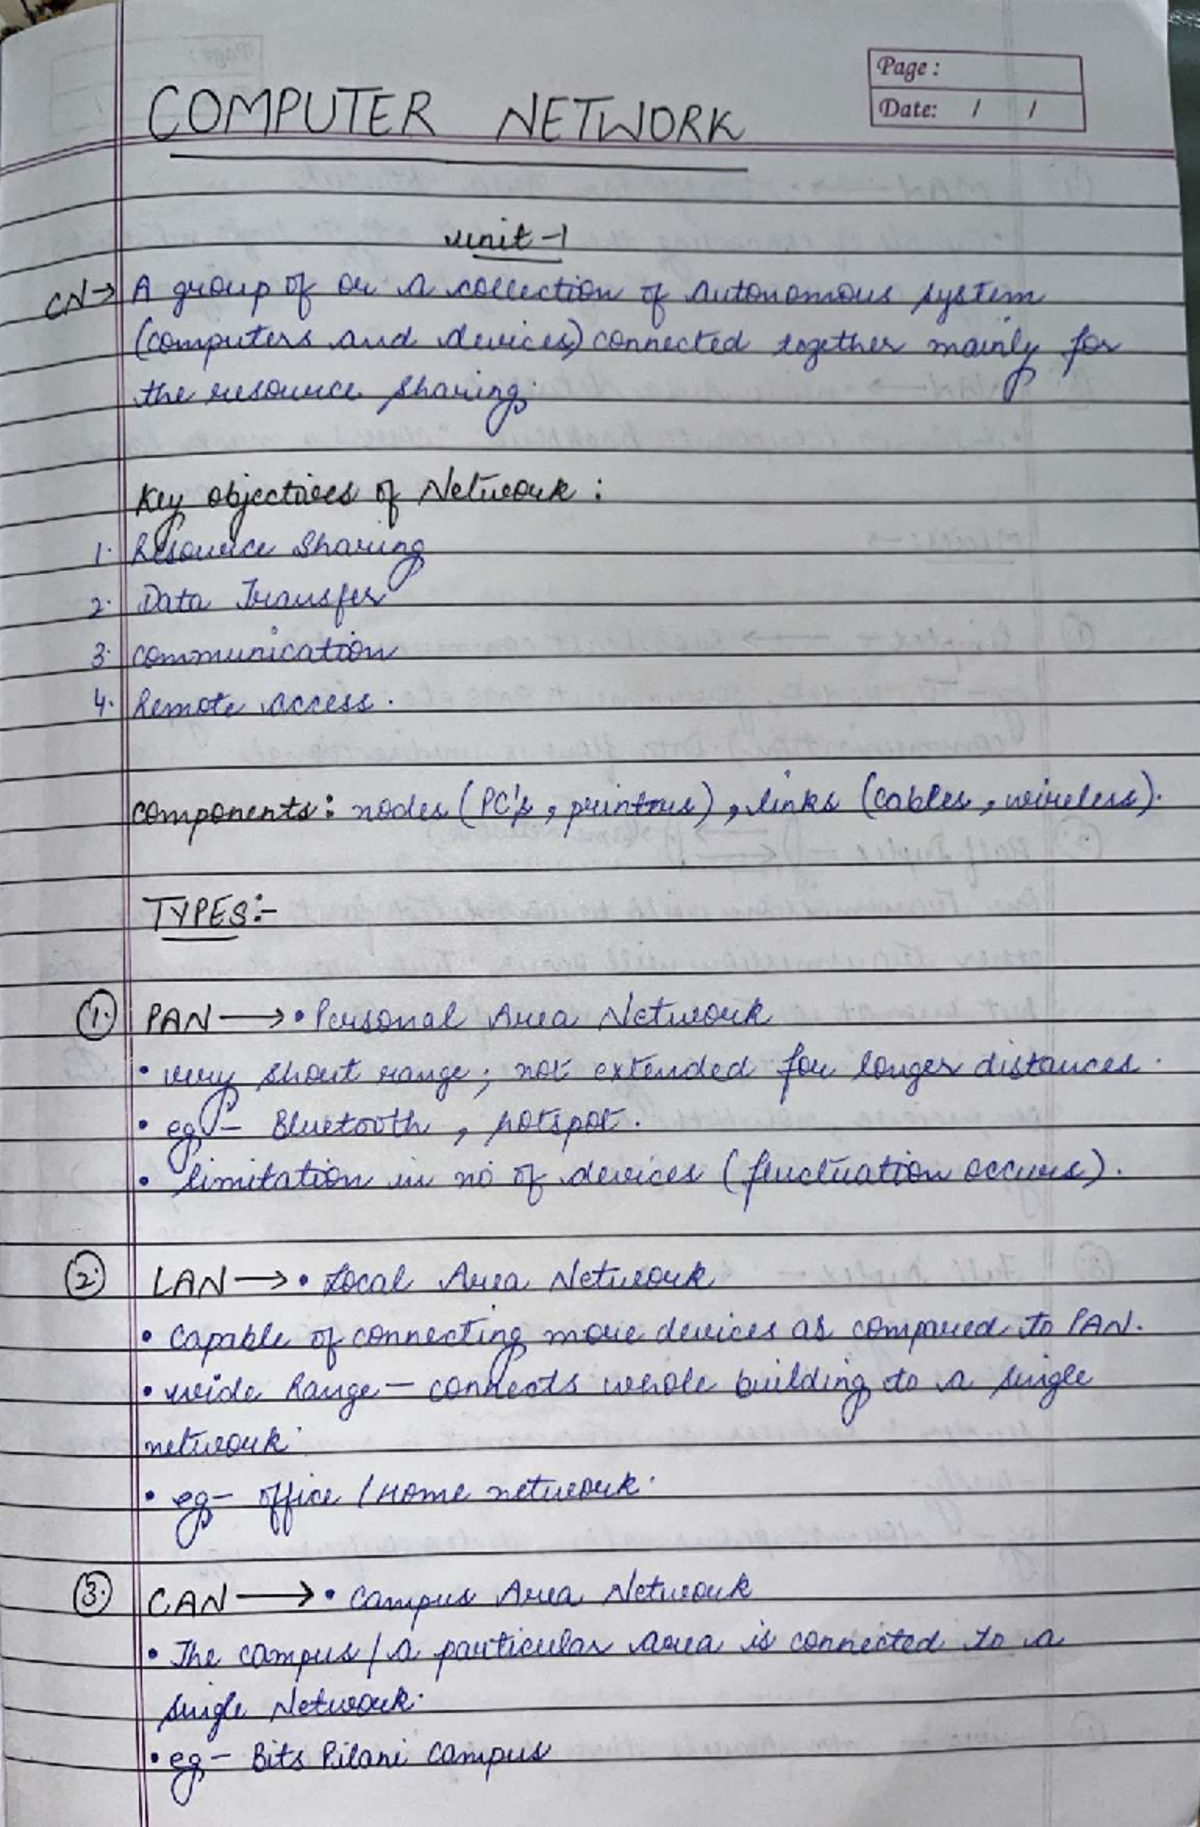 Page :
Date: / /
COMPUTER NETWORK
unit-1
CN→ A group of or a collection of autonomous system
(computers and devices) connected together mainly for
the resource sharing.
Key objectives of Network :
1. Resource Sharing
2. Data Transfer
3. communication
4. Remote access.
components: nodes (PC's, printers), links (cables, wireless).
TYPES:-
1. PAN → • Personal Area Network
• very short range; not extended for longer distances.
• eg - Bluetooth, hotspot.
• limitation in no of devices (fluctuation occurs).
2. LAN → • Local Area Network
• Capable of connecting more devices as compared to PAN.
• wide Range - connects whole building to a single
network.
• eg - office / Home network.
3. CAN → • Campus Area Network
• The campus / a particular area is connected to a
single Network.
• eg - Bits Pilani Campus